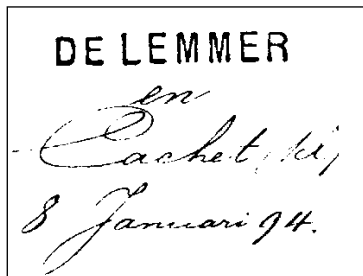 DE LEMMER
en
Cachet, (kl)
8 Januari 94.